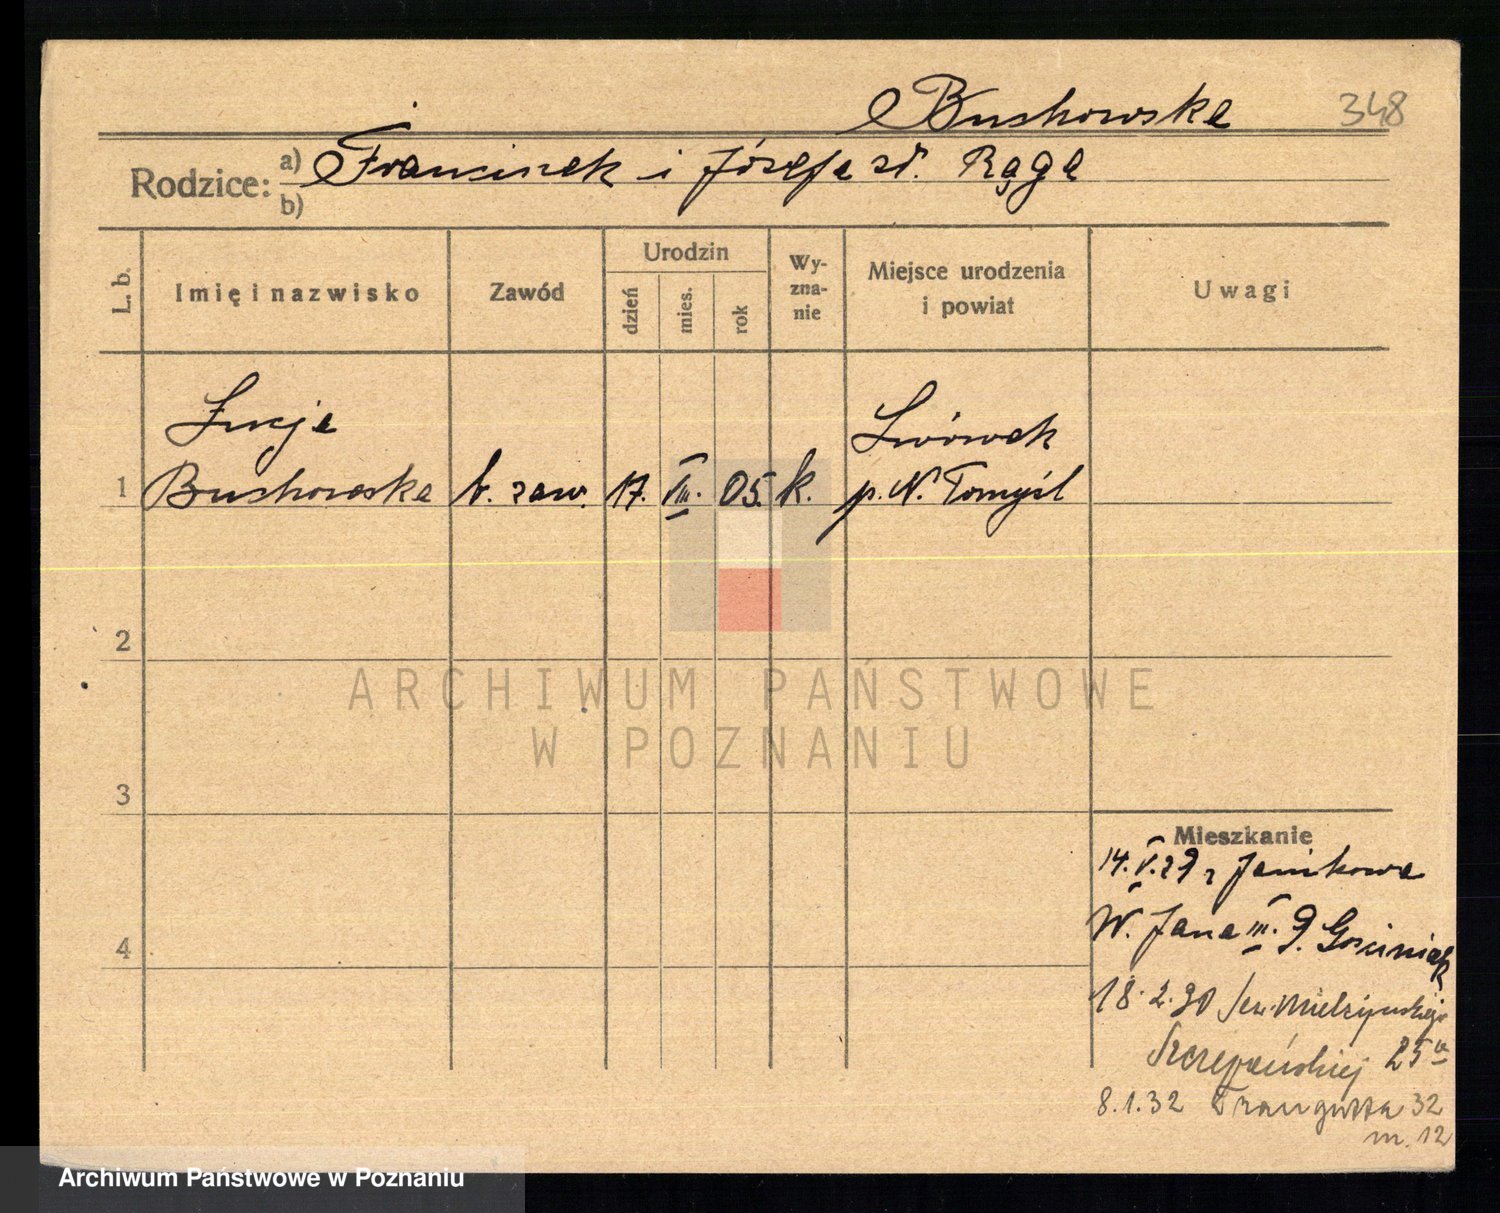 Buchowska 348
Rodzice: a) Franciszek i Józefa zd. Rąga
b)
L. b. Imię i nazwisko Zawód Urodzin dzień mies. rok Wyznanie Miejsce urodzenia i powiat Uwagi
Łucja Lwówek
1 Buchowska b. zaw. 17. VIII. 05. k. p. N. Tomyśl
2
ARCHIWUM PAŃSTWOWE
W POZNANIU
3
Mieszkanie
14. V. 29 z Janikowa
W. Jana III. 9. Gościniak
4
18.2.30 Sew. Mielżyńskiego
25a
8.1.32 Traugutta 32
m. 12
Archiwum Państwowe w Poznaniu